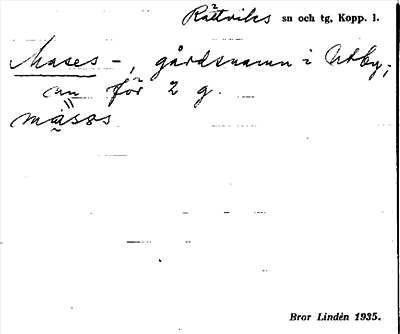 Rättviks sn och tg, Kopp. l.
Mases -, gårdsnamn i Utby;
nu för 2 g.
Bror Lindén 1935.